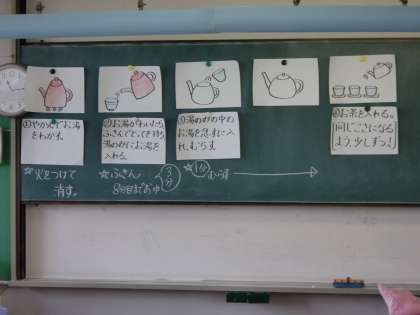 ①やかんでお湯
をわかす。
②お湯がわいたら
ふきんでとってを持ち
湯のみにお湯を
入れる。
③湯のみの中の
お湯を急すに入
れ、むらす
④お茶を入れる。
同じこさになる
よう、少しずつ！
☆火をつけて
消す。
☆ふきん
8分目まで
3分
☆1分むらす